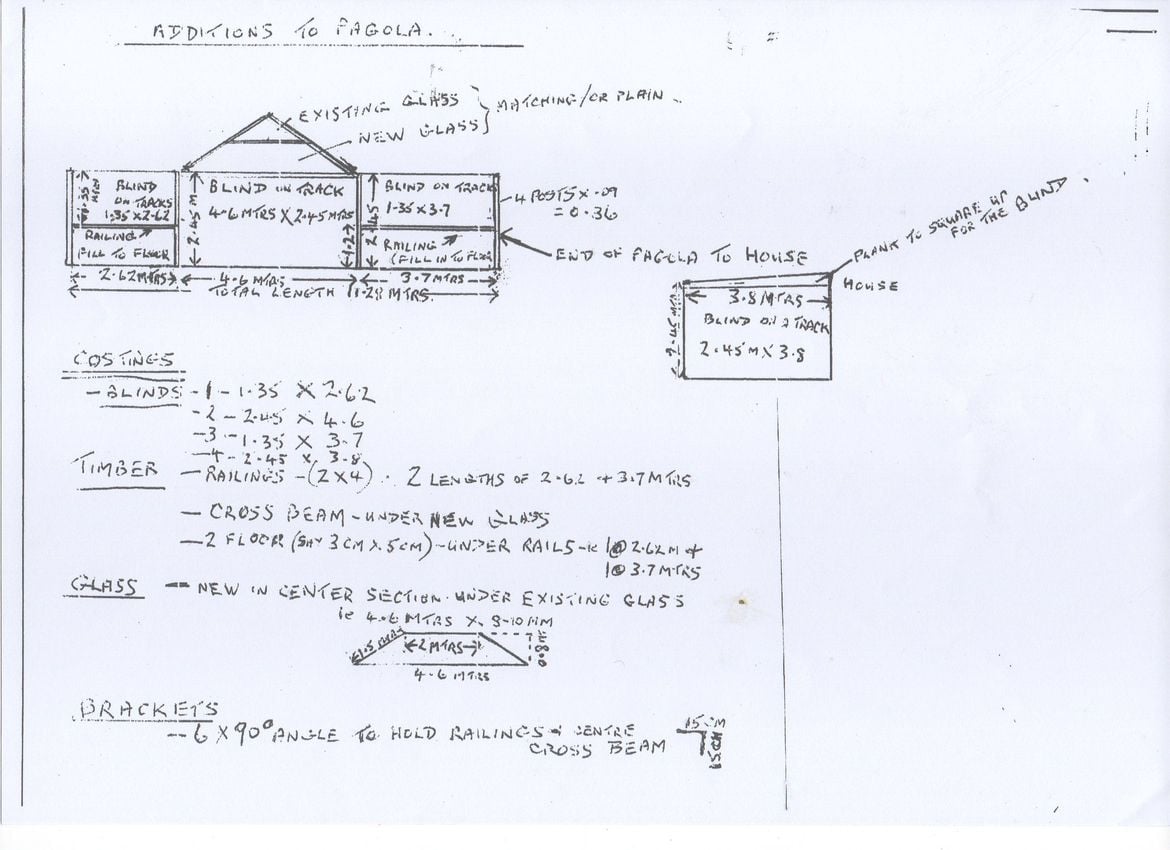 ADDITIONS TO PAGOLA.
EXISTING GLASS
NEW GLASS
MATCHING/OR PLAIN
BLIND
ON TRACKS
1.35 X 2.62
RAILING
FILL TO FLOOR
2.45 M
BLIND ON TRACK
4.6 MTRS X 2.45 MTRS
1.2
2.45
BLIND ON TRACK
1.35 X 3.7
RAILING
(FILL IN TO FLOOR
4 POSTS X .09
= 0.36
END OF PAGOLA TO HOUSE
2.62 MTRS
4.6 MTRS
3.7 MTRS
TOTAL LENGTH 11.28 MTRS.
PLANK TO SQUARE UP
FOR THE BLIND
HOUSE
3.8 MTRS
2.45 MTR
BLIND ON A TRACK
2.45 M X 3.8
COSTINGS
- BLINDS - 1 - 1.35 X 2.62
- 2 - 2.45 X 4.6
- 3 - 1.35 X 3.7
- 4 - 2.45 X 3.8
TIMBER - RAILINGS - (2 X 4) . 2 LENGTHS OF 2.62 + 3.7 MTRS
- CROSS BEAM - UNDER NEW GLASS
- 2 FLOOR (SAY 3 CM X 5 CM) - UNDER RAILS - IE 1@ 2.62 M +
1@ 3.7 MTRS
GLASS - NEW IN CENTER SECTION UNDER EXISTING GLASS
IE 4.6 MTRS X 8-10 MM
1.5 MTRS
2 MTRS
4.6 MTRS
BRACKETS
- 6 X 90° ANGLE TO HOLD RAILINGS + CENTRE
CROSS BEAM
15 CM
15 CM